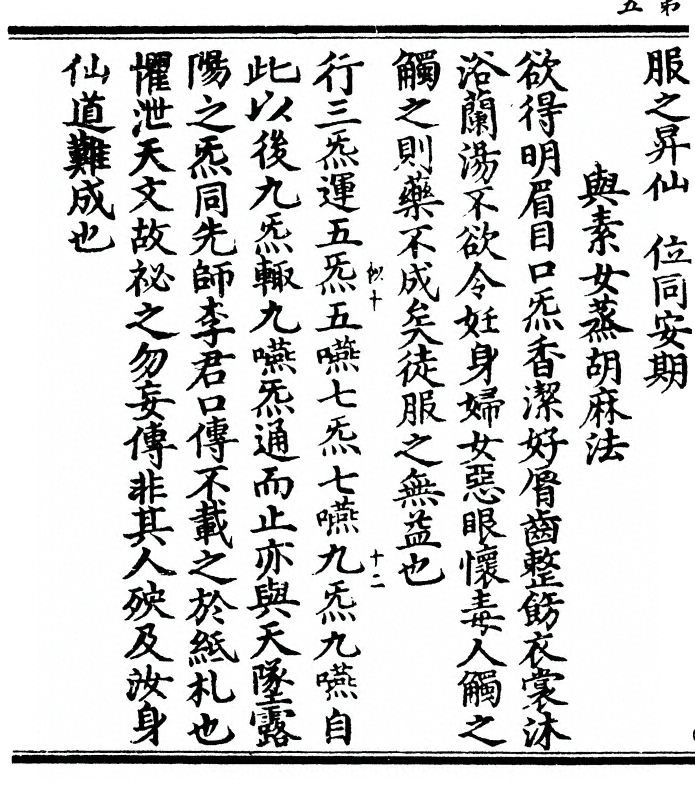 第
五
服之昇仙　位同安期
與素女蒸胡麻法
欲得明眉目口炁香潔好脣齒整飭衣裳沐
浴蘭湯不欲令妊身婦女惡眼懷毒人觸之
觸之則藥不成矣徒服之無益也
十
十二
行三炁運五炁五嚥七炁七嚥九炁九嚥自
此以後九炁輙九嚥炁通而止亦與天墜露
陽之炁同先師李君口傳不載之於紙札也
懼泄天文故祕之勿妄傳非其人殃及汝身
仙道難成也